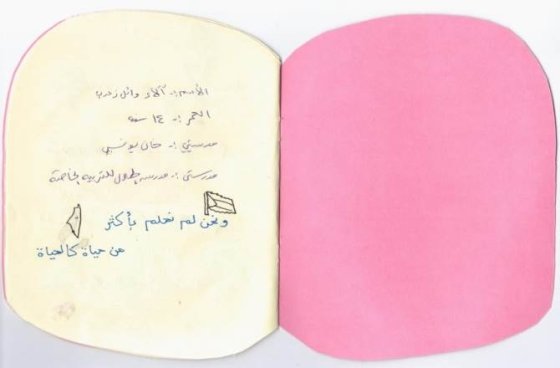 الاسم :- آلاء وائل زعرب
العمر :- ١٤ سنة
مدينتي :- خان يونس
مدرستي :- مدرسة للتربية الخاصة
ونحن لم نحلم بأكثر
من حياة كالحياة